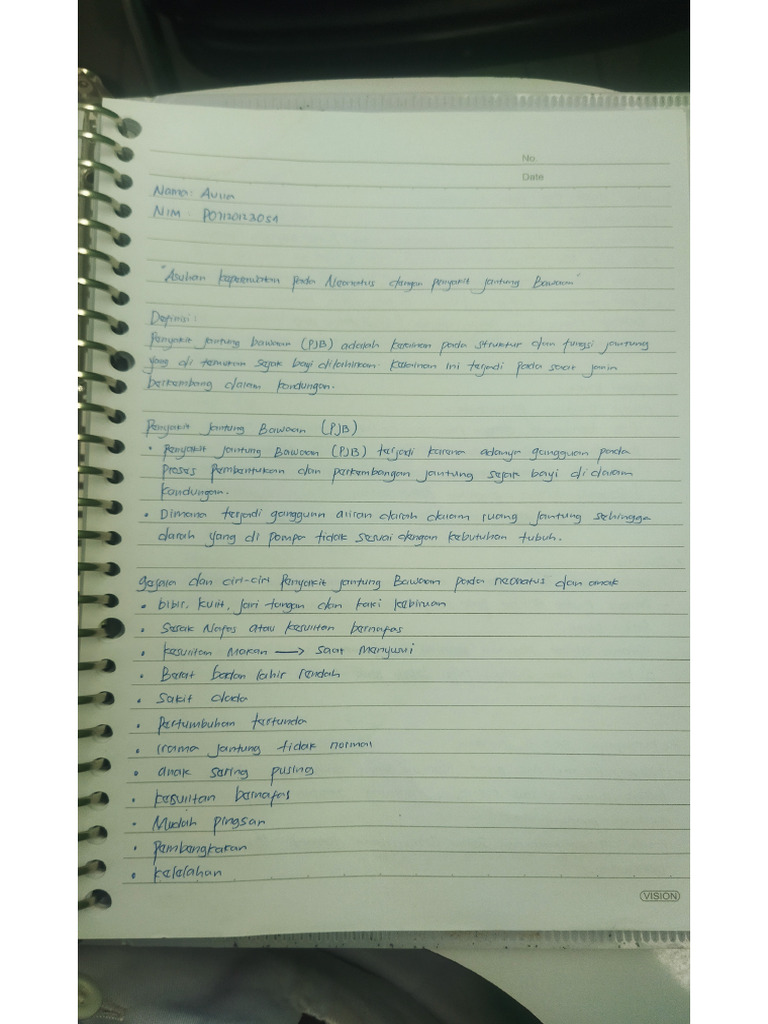 No.
Date
Nama: Aulia
NIM : P07120122051
"Asuhan keperawatan pada Neonatus dengan penyakit jantung Bawaan"
Definisi:
Penyakit jantung bawaan (PJB) adalah kelainan pada struktur dan fungsi jantung
yang di temukan sejak bayi dilahirkan. Kelainan ini terjadi pada saat janin
berkembang dalam kandungan.
Penyakit jantung Bawaan (PJB)
• Penyakit jantung Bawaan (PJB) terjadi karena adanya gangguan pada
Proses Pembentukan dan perkembangan jantung sejak bayi di dalam
kandungan.
• Dimana terjadi gangguan aliran darah dalam ruang jantung sehingga
darah yang di pompa tidak sesuai dengan kebutuhan tubuh.
gejala dan ciri-ciri Penyakit jantung Bawaan pada neonatus dan anak
• bibir, kulit, jari tangan dan kaki kebiruan
• Sesak Nafas atau kesulitan bernafas
• kesulitan Makan → saat Menyusui
• Berat badan lahir rendah
• Sakit dada
• Pertumbuhan tertunda
• Irama jantung tidak normal
• anak sering pusing
• kesulitan bernafas
• Mudah pingsan
• Pembengkakan
• kelelahan
VISION